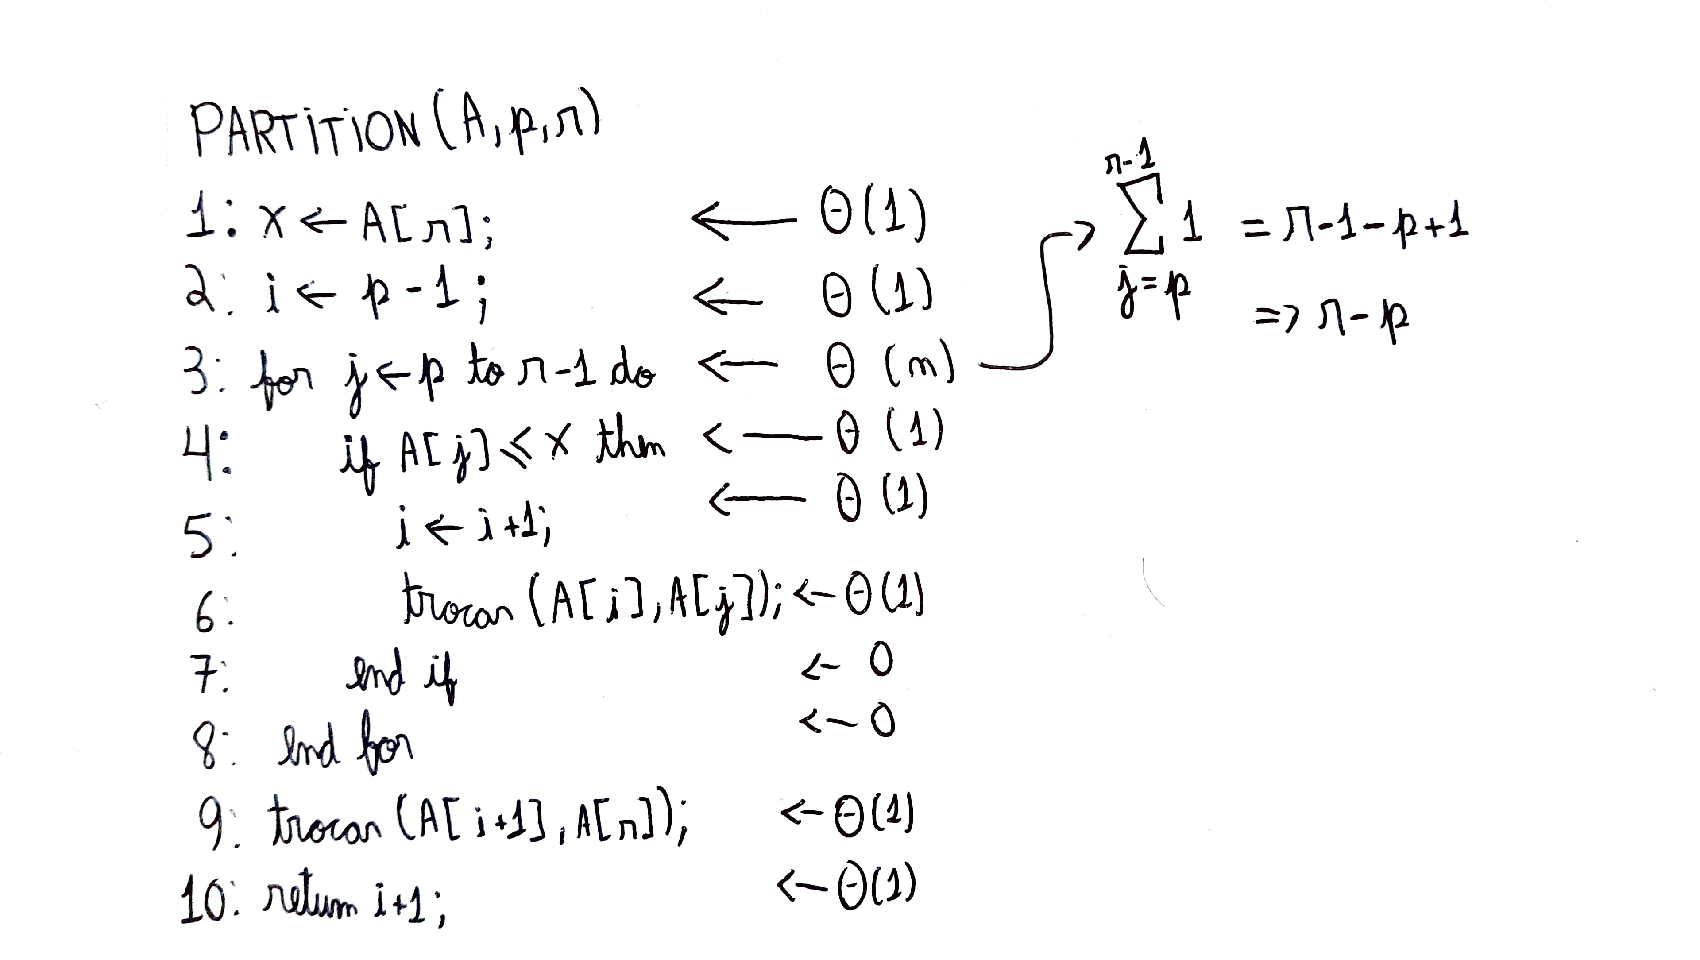 PARTITION(A,p,r)
1: x ← A[r]; ← Θ(1)
2: i ← p-1; ← Θ(1)
3: for j ← p to r-1 do ← Θ(n) → r-1 ∑ j=p 1 = r-1-p+1
=> r-p
4: if A[j] ≤ x then ← Θ(1)
5: i ← i+1; ← Θ(1)
6: trocar(A[i],A[j]); ← Θ(1)
7: end if ← 0
8: end for ← 0
9: trocar(A[i+1],A[r]); ← Θ(1)
10: return i+1; ← Θ(1)